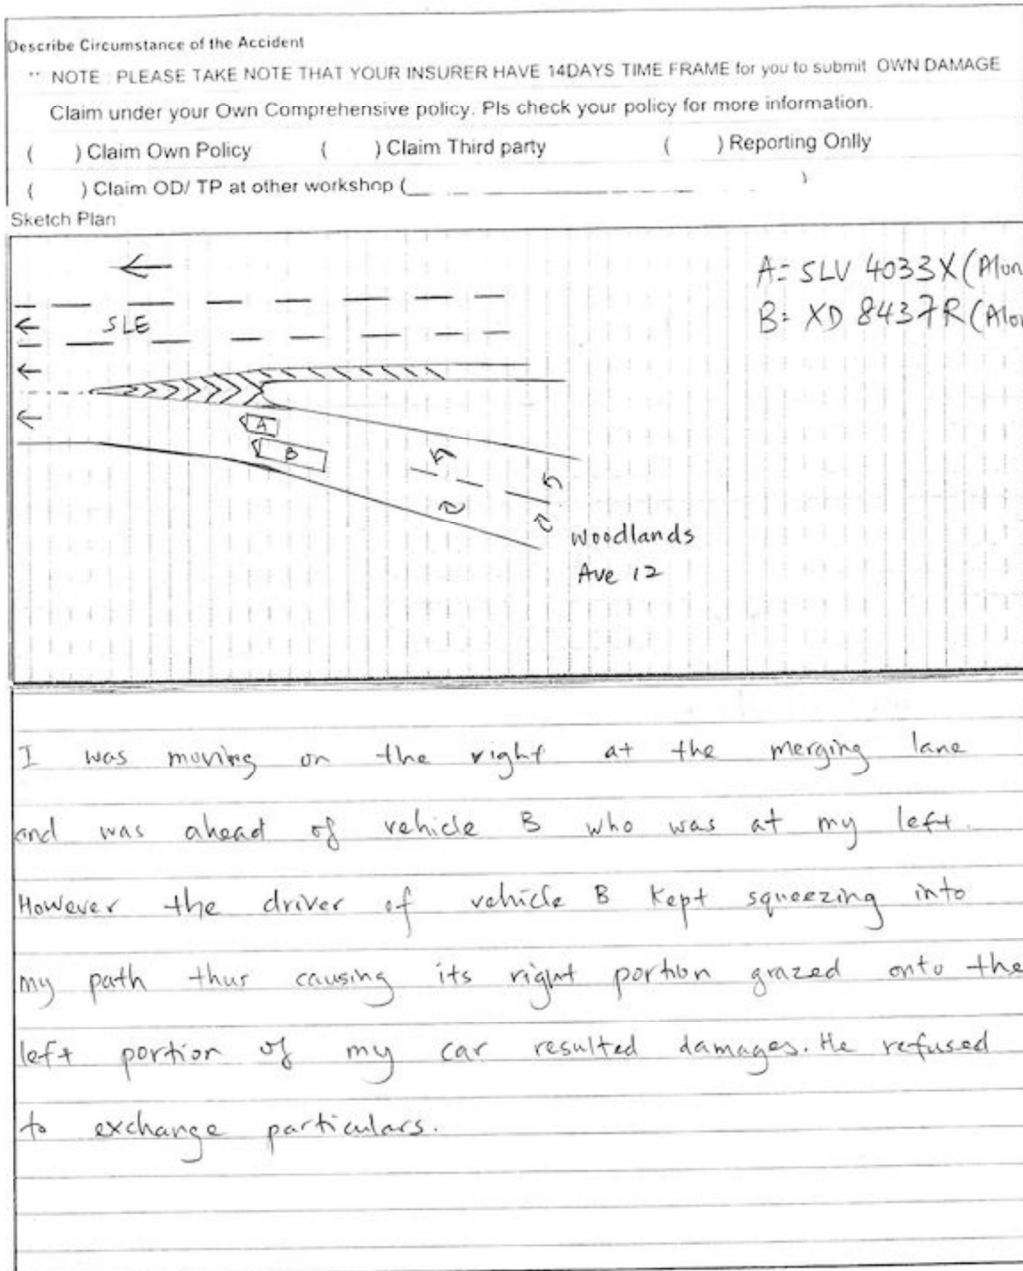 Describe Circumstance of the Accident
** NOTE : PLEASE TAKE NOTE THAT YOUR INSURER HAVE 14DAYS TIME FRAME for you to submit OWN DAMAGE
Claim under your Own Comprehensive policy. Pls check your policy for more information.
( ) Claim Own Policy ( ) Claim Third party ( ) Reporting Onlly
( ) Claim OD/ TP at other workshop ( )
Sketch Plan
A: SLV 4033X (Alon
B: XD 8437R (Alon
SLE
A
B
Woodlands
Ave 12
I was moving on the right at the merging lane
and was ahead of vehicle B who was at my left.
However the driver of vehicle B kept squeezing into
my path thus causing its right portion grazed onto the
left portion of my car resulted damages. He refused
to exchange particulars.